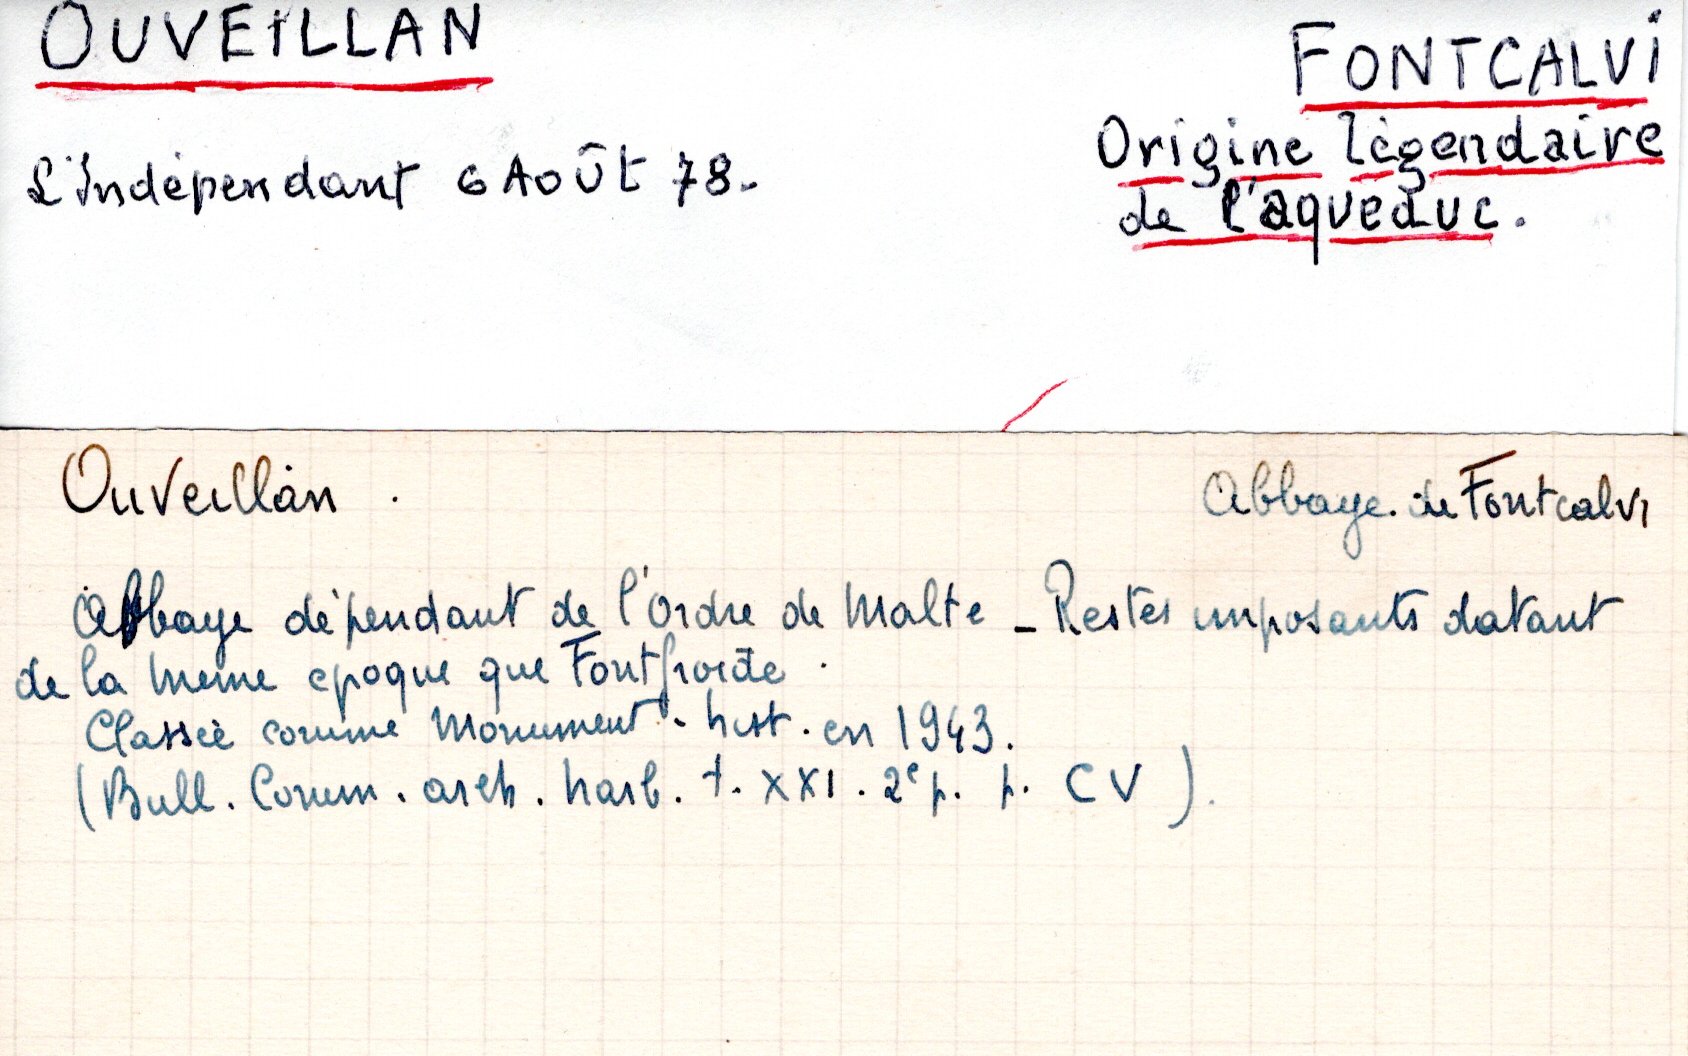 OUVEILLAN
FONTCALVI
Origine légendaire
de l'aqueduc.
L'indépendant 6 Août 78.
Ouveillan .
Abbaye de Fontcalvi
Abbaye dépendant de l'Ordre de Malte - Restes imposants datant
de la même époque que Fontfroide .
Classée comme Monument. hist. en 1943.
(Bull. Comm. arch. narb. t. XXI. 2e p. p. CV).